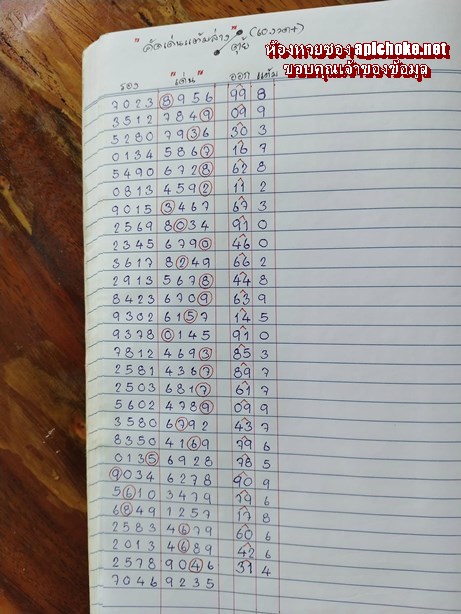 "คัดเด่นแต้มล่าง" (แดงวด+)
ตุ้ย
ห้องหวยซอง apichoke.net
ขอบคุณเจ้าของข้อมูล
รอง "เด่น" ออก แต้ม
7023 8956 99 8
3512 7849 09 9
5280 7936 30 3
0134 5867 16 7
5490 6728 62 8
0813 4592 11 2
9015 3467 67 3
2569 8034 91 0
2345 6790 46 0
3617 8249 66 2
2913 5678 44 8
8423 6709 63 9
9302 6157 14 5
9378 0145 91 0
7812 4693 85 3
2581 4367 89 7
2503 6817 61 7
5602 4789 09 9
3580 6792 43 7
8350 4169 79 6
0135 6928 78 5
9034 6278 90 9
5610 3479 79 6
6849 1257 17 8
2583 4679 60 6
2013 4689 42 6
2578 9046 31 4
7046 9235